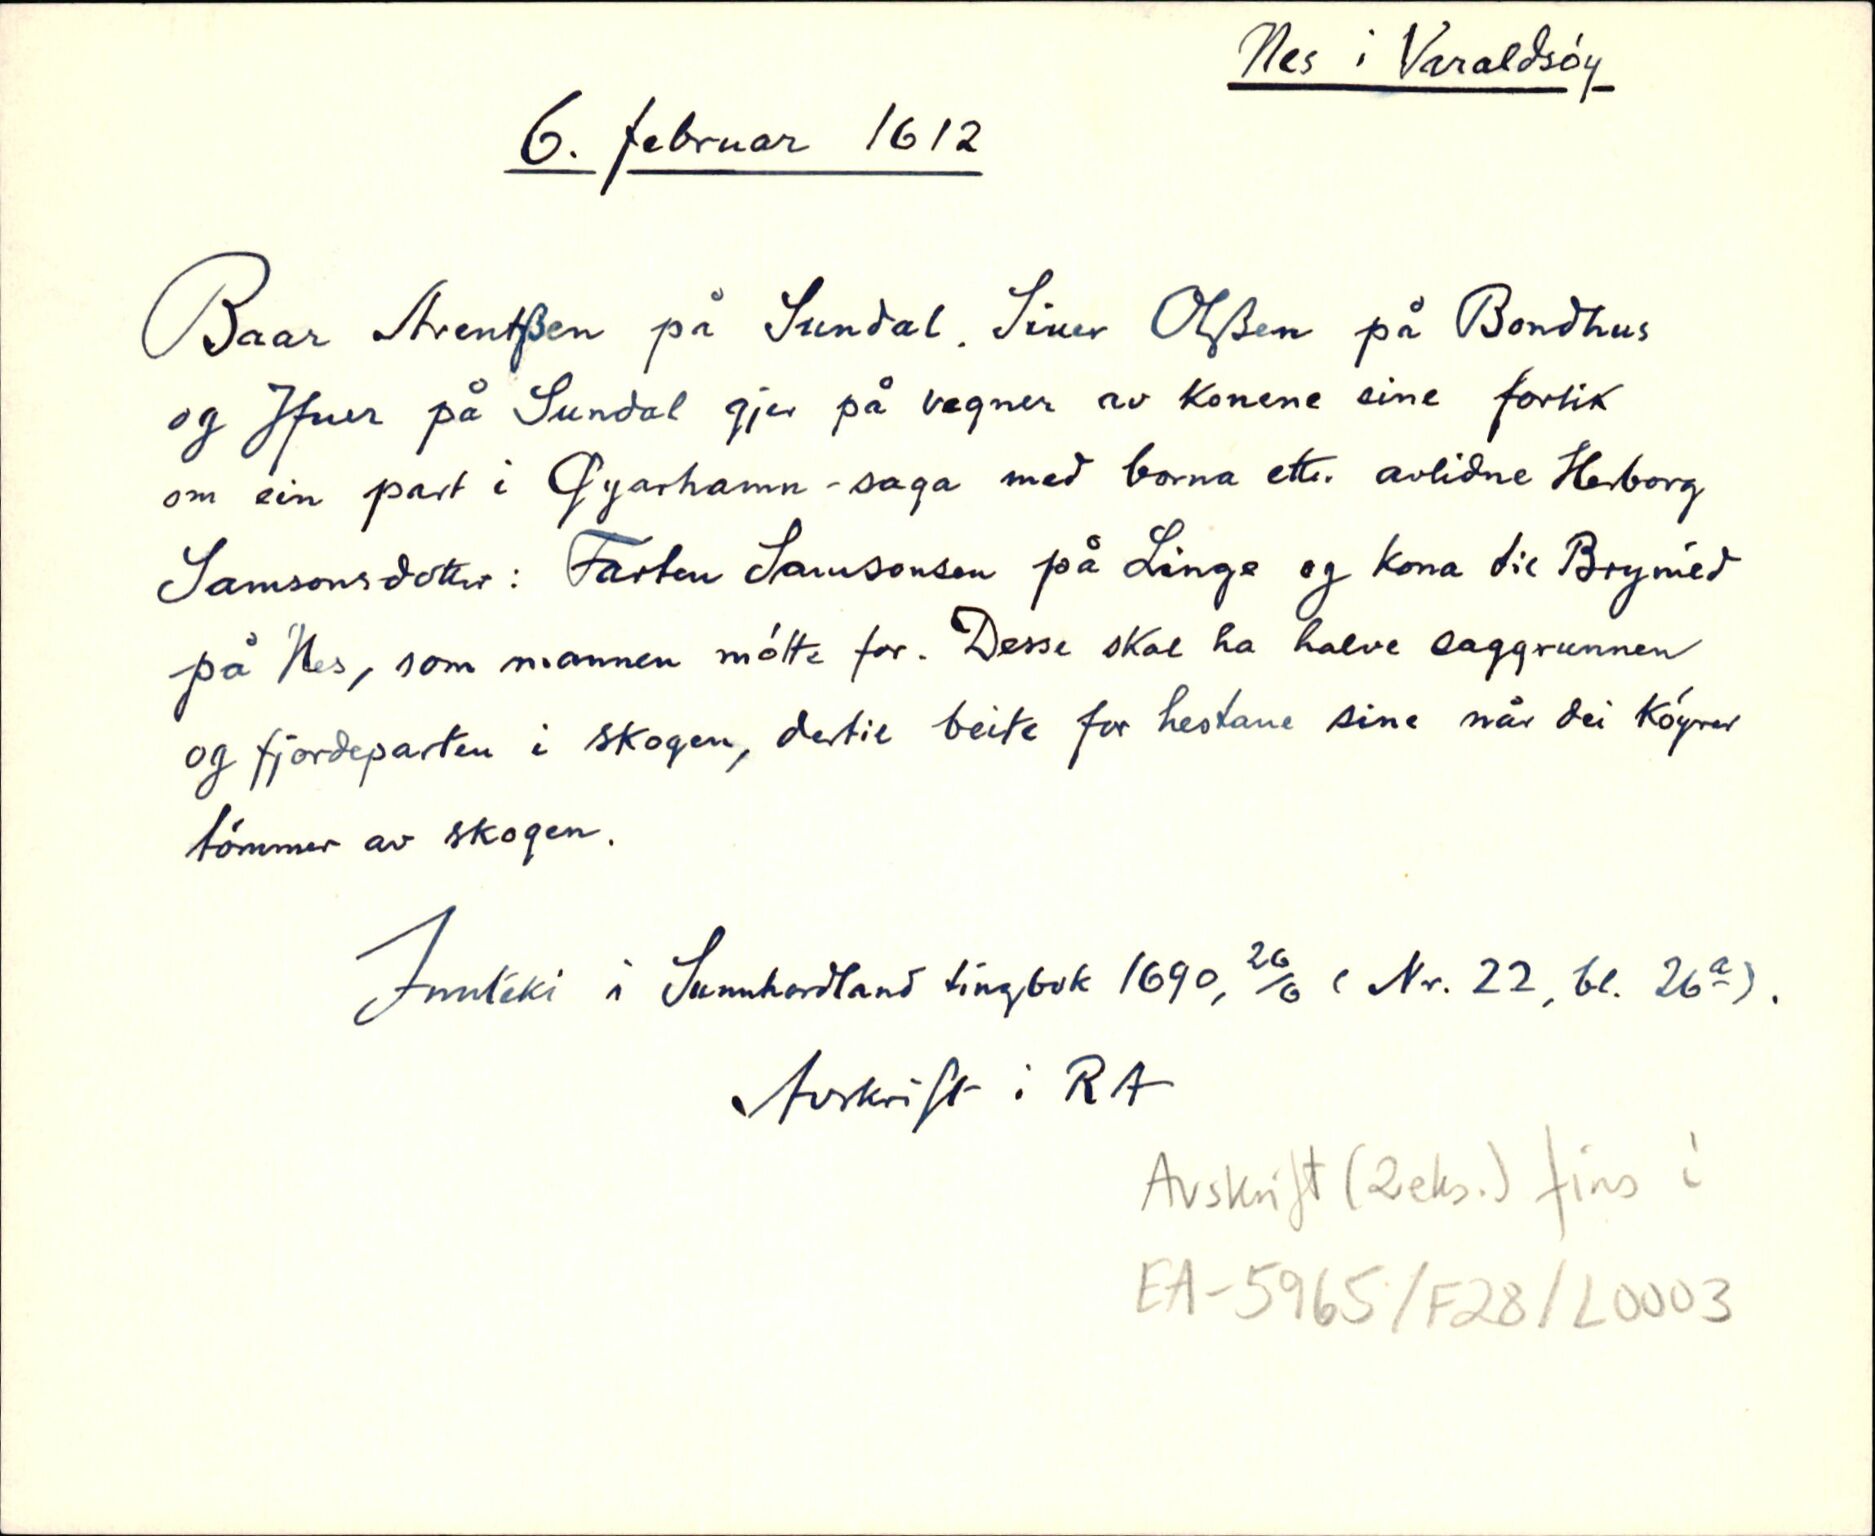 Nes i Varaldsóy
6. februar 1612
Baar Arentßen på Sundal. Siuer Olßen på Bondhus
og Jfuer på Sundal gjer på vegner av konene sine forlik
om ein part i Øyarhamn-saga med borna etter avlidne Herborg
Samsonsdotter: Farten Samsonsen på Linge og kona til Brynied
på Nes, som mannen mótte for. Desse skal ha halve saggrunnen
og fjordeparten i skogen, dertil beite for hestane sine når dei kóyrer
tómmer av skogen.
Innteki i Sunnhordland tingbok 1690, 26/6 (Nr. 22, bl. 26a).
Avskrift i RA
Avskrift (2 eks.) fins i
EA-5965/F28/L0003